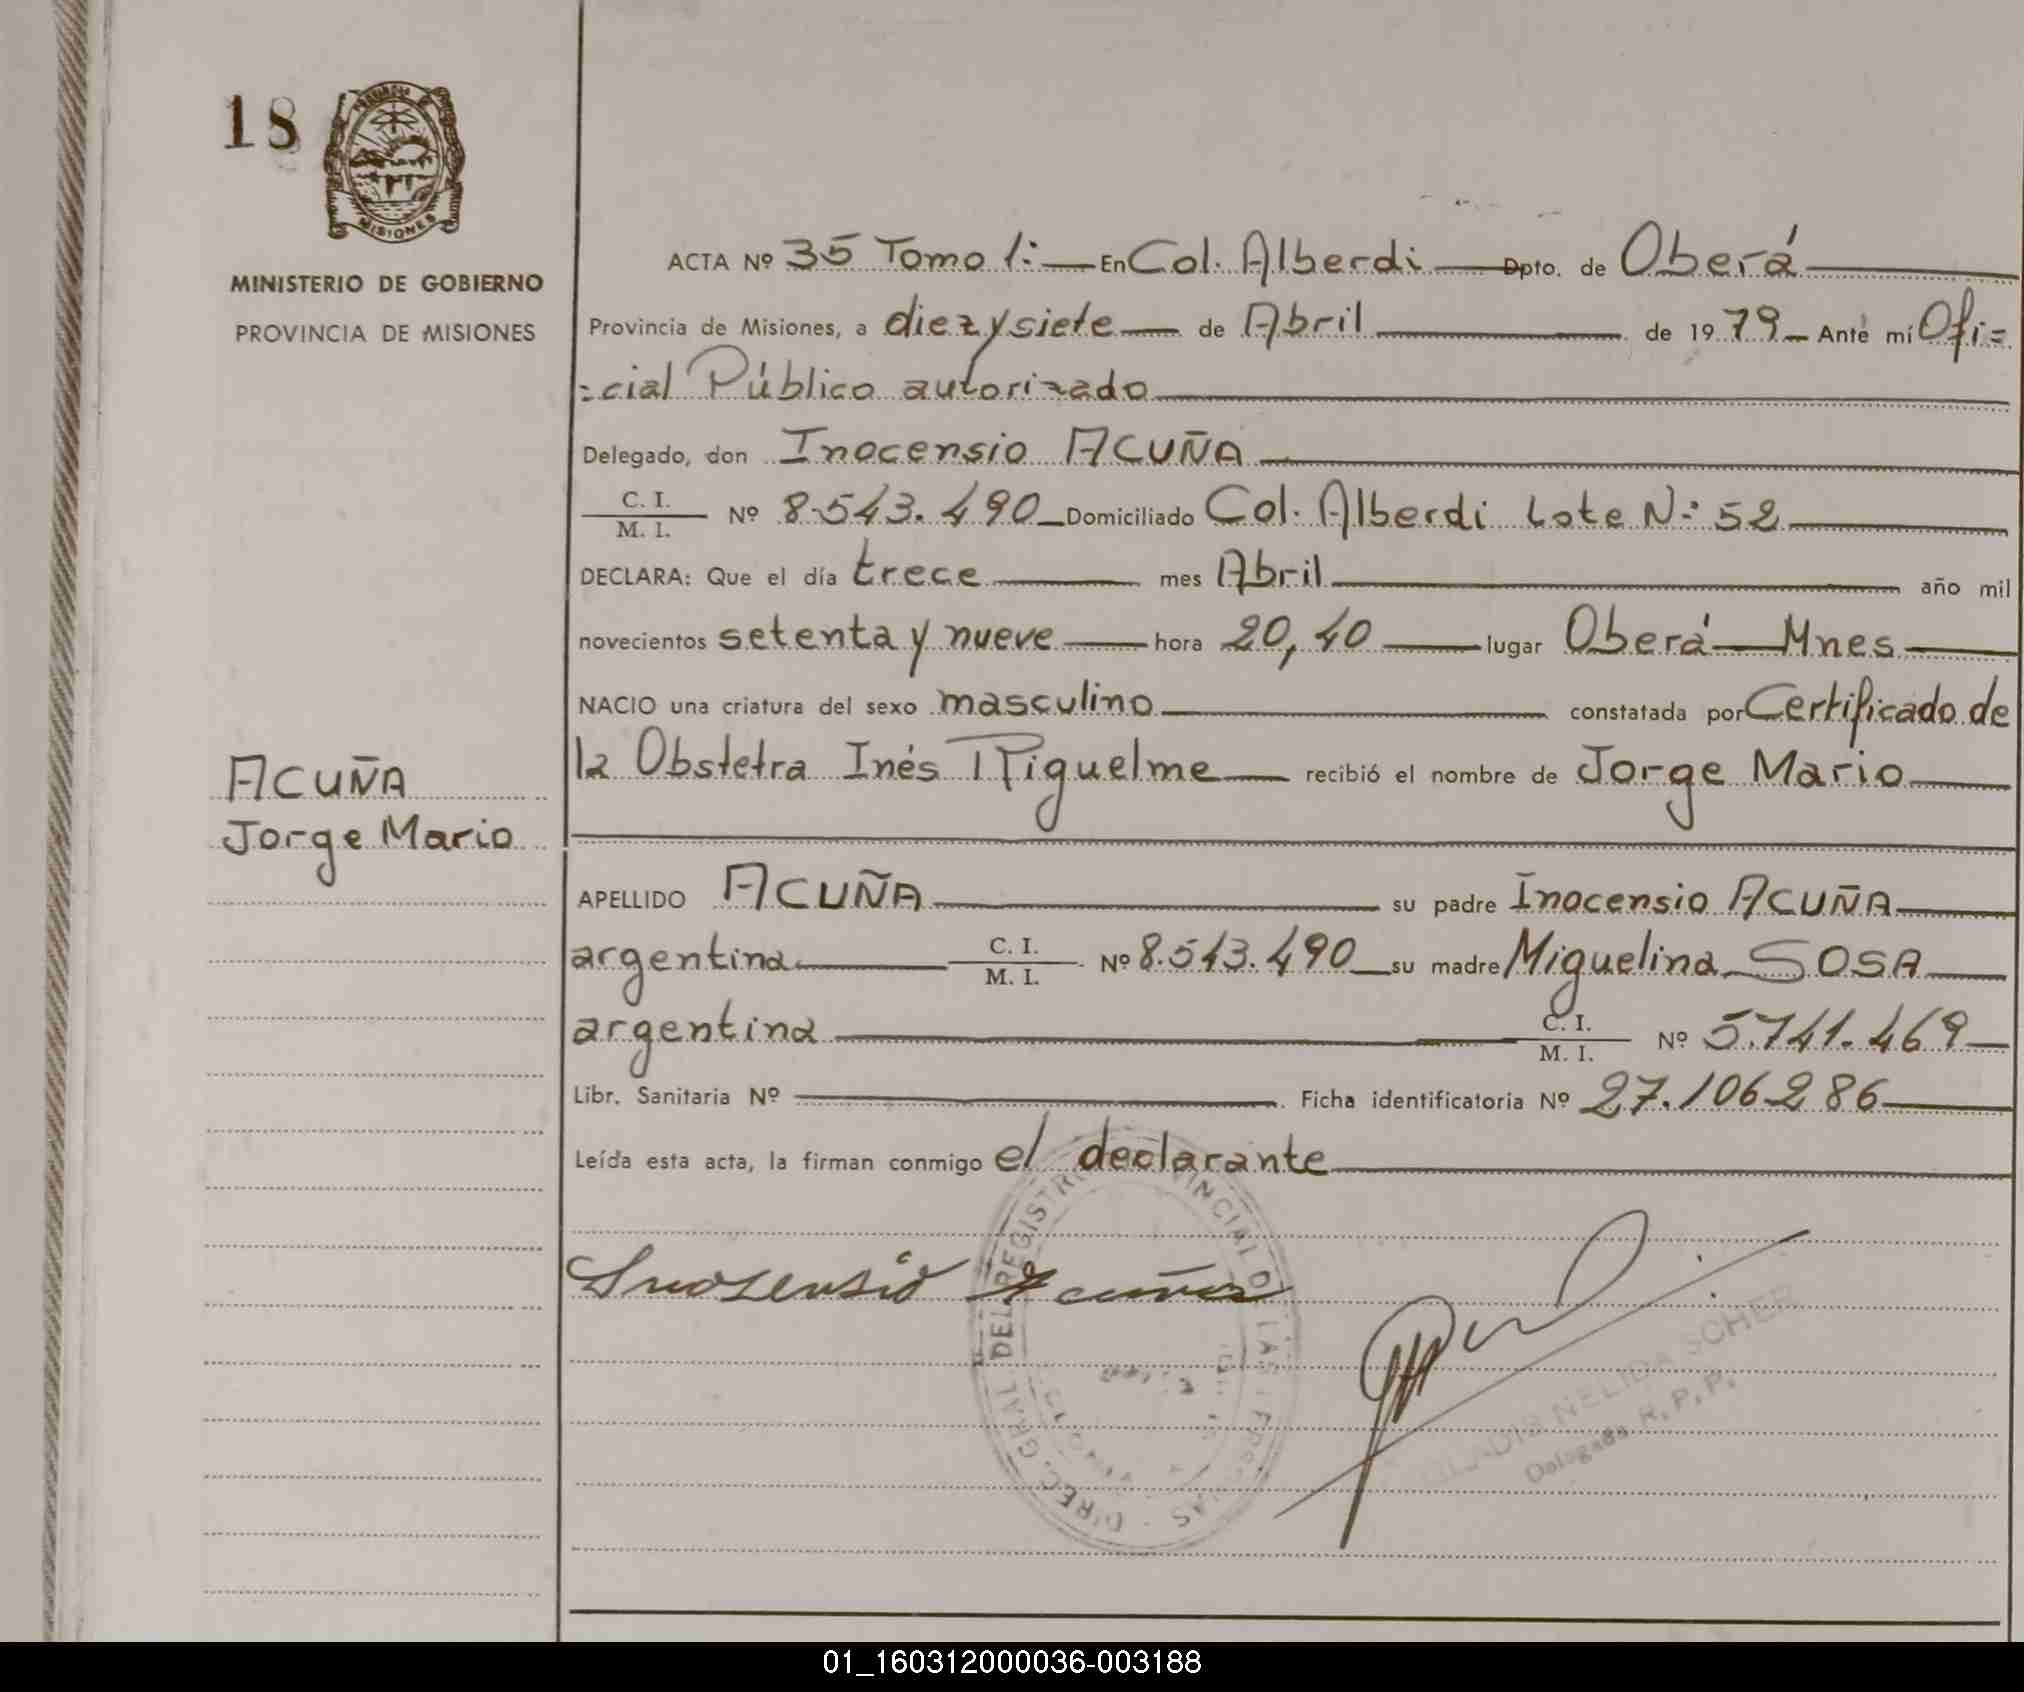 18
PROVINCIA DE
MISIONES
MINISTERIO DE GOBIERNO
PROVINCIA DE MISIONES
ACTA Nº 35 Tomo 1:— En Col. Alberdi — Dpto. de Oberá —
Provincia de Misiones, a diez y siete — de Abril — de 1979 — Ante mí Ofi=
=cial Público autorizado —
Delegado, don Inocensio ACUÑA —
C. I.
M. I. Nº 8.543.490 — Domiciliado Col. Alberdi Lote N:º 52 —
DECLARA: Que el día trece — mes Abril — año mil
novecientos setenta y nueve — hora 20,40 — lugar Oberá — Mnes —
NACIO una criatura del sexo masculino — constatada por Certificado de
la Obstetra Inés Riquelme — recibió el nombre de Jorge Mario —
ACUÑA
Jorge Mario
APELLIDO ACUÑA — su padre Inocensio ACUÑA —
argentina — C. I.
M. I. Nº 8.543.490 — su madre Miguelina SOSA —
argentina — C. I.
M. I. Nº 5.741.469 —
Libr. Sanitaria Nº — Ficha identificatoria Nº 27.106286 —
Leída esta acta, la firman conmigo el declarante —
Inosensio Acuña
DIREC. GRAL DEL REGISTRO PROVINCIAL DE LAS PERSONAS
NELIDA SCHER
Delegada R.P.P.
01_160312000036-003188